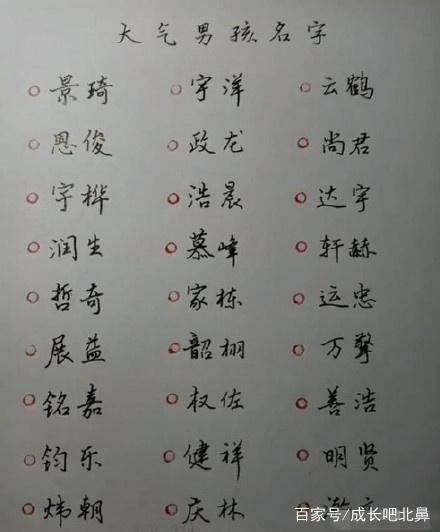 大气男孩名字
景琦 宇洋 云鹤
恩俊 政龙 尚君
宇桦 浩晨 达宇
润生 慕峰 轩赫
哲奇 家栋 运忠
展益 韶栩 万擎
铭嘉 权佐 善浩
钧乐 健祥 明贤
炜朝 庆林
百家号/成长吧北鼻